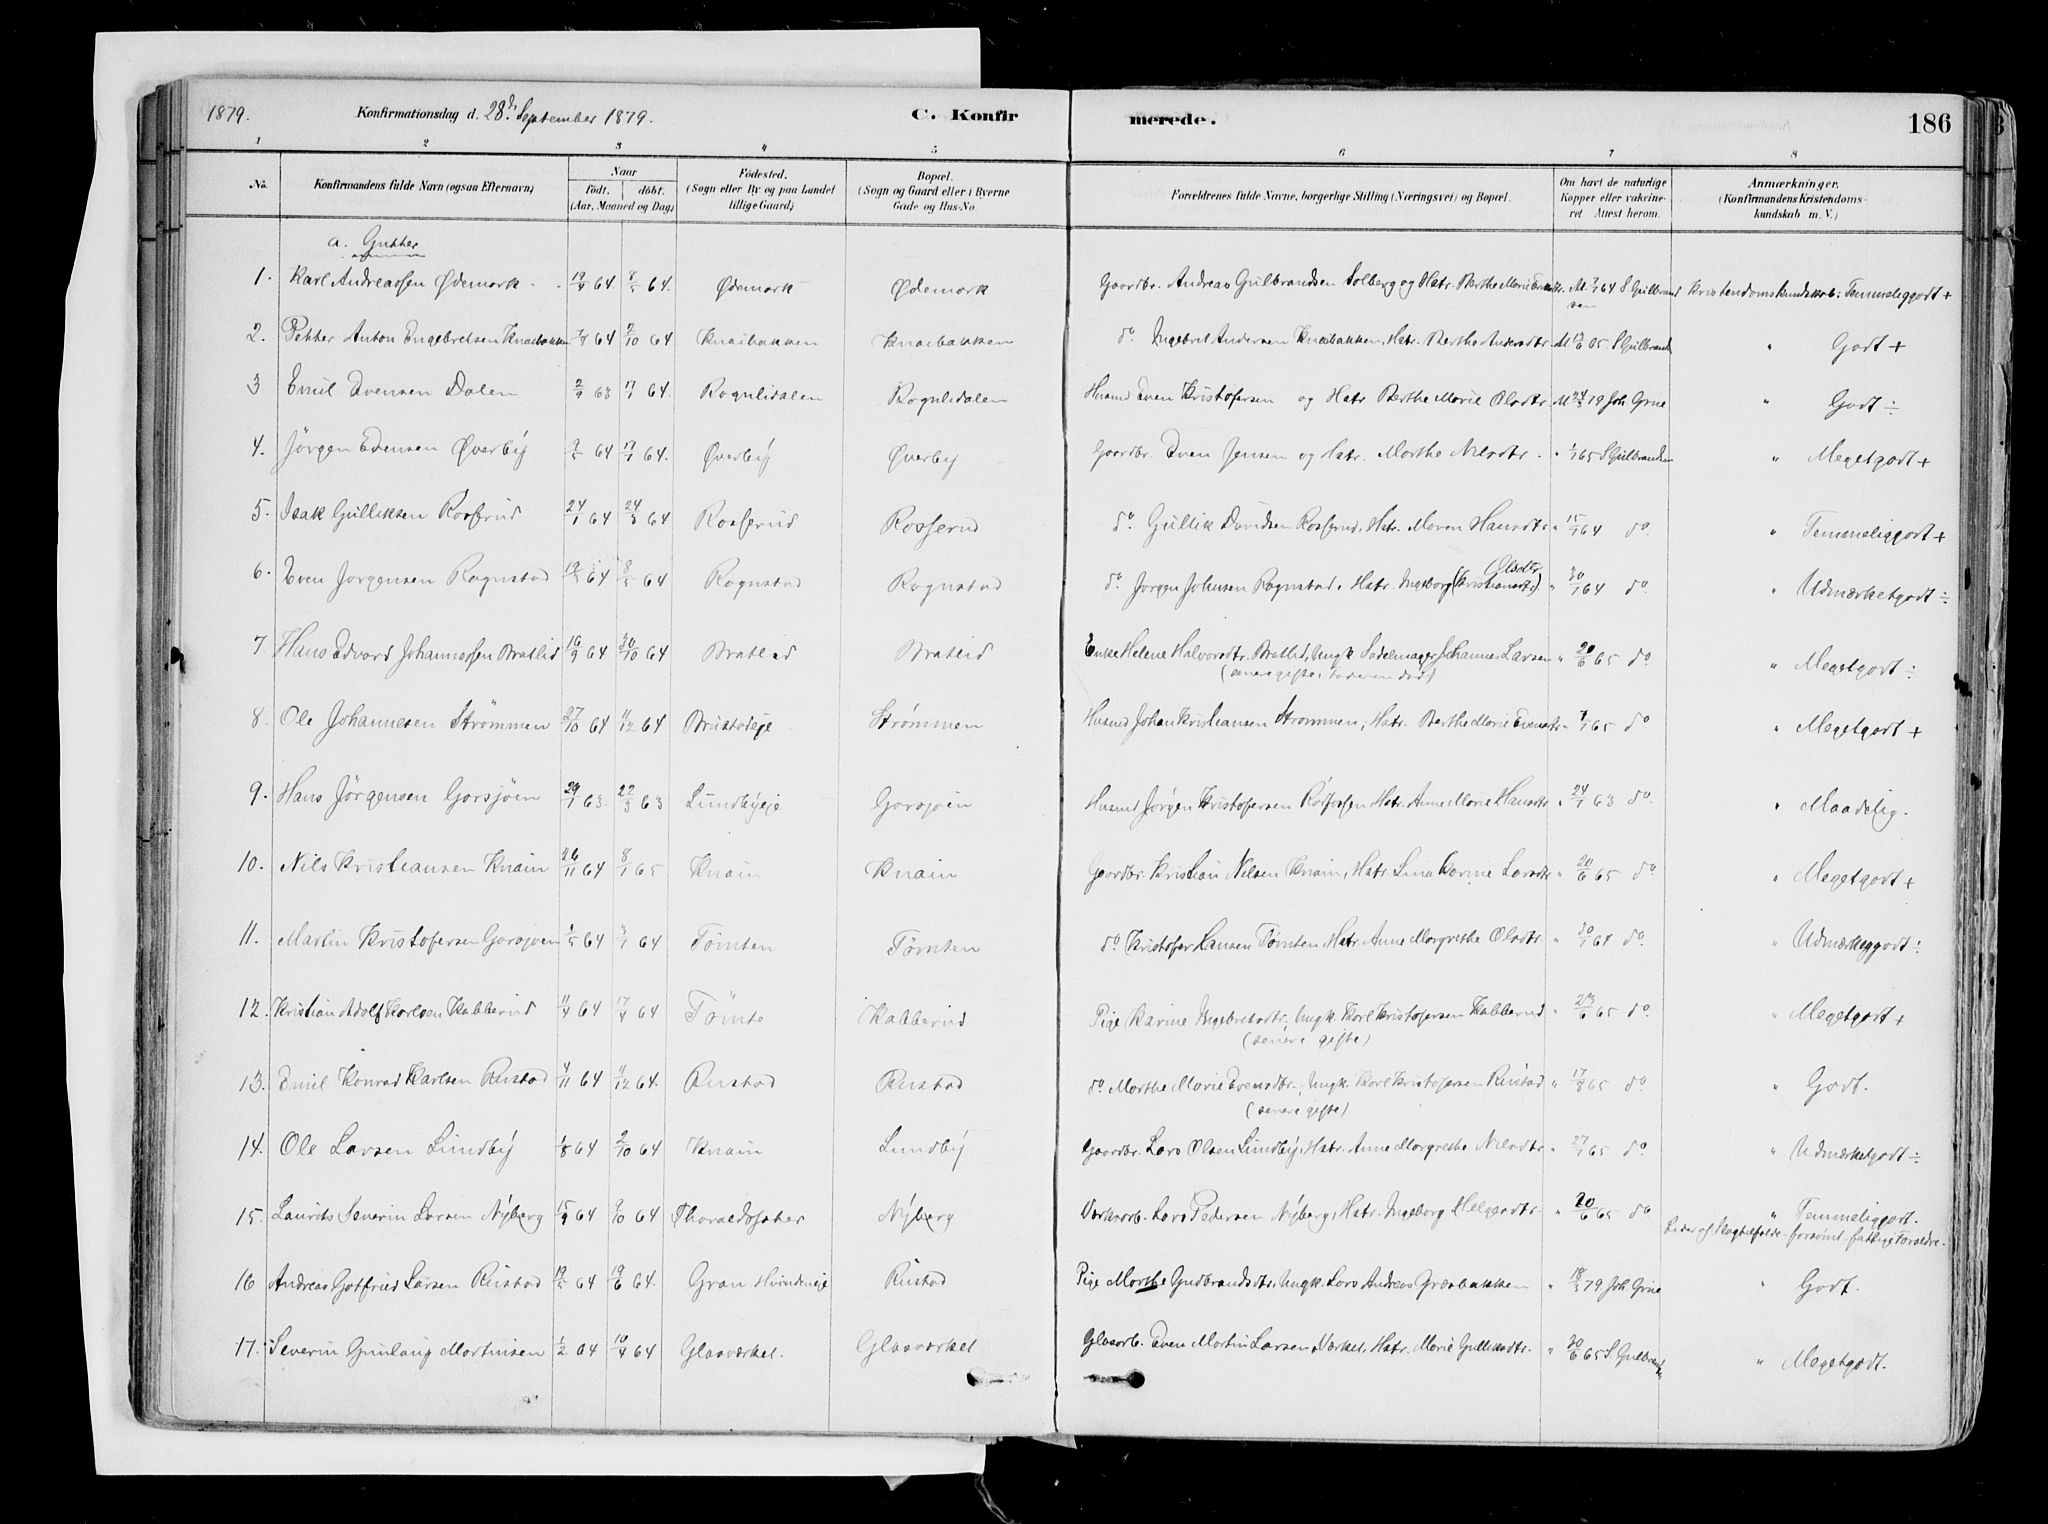 1879.
Konfirmationsdag d. 28de September 1879.
C. Konfirmerede.
186
1 2 3 4 5 6 7 8
No. Konfirmandens fulde Navn (ogsaa Efternavn) Naar født. døbt. (Aar, Maaned og Dag) Fødested. (Sogn eller By og paa Landet tillige Gaard) Bopæl. (Sogn og Gaard eller i Byerne Gade og Hus-No. Forældrenes fulde Navne, borgerlige Stilling (Næringsvei) og Bopæl. Om havt de naturlige Kopper eller vakcineret Attest herom. Anmærkninger. (Konfirmandens Kristendomskundskab m. V.)
a. Gutter
1. Karl Andreassen Ødemark 64 8/5 64. Ødemark Ødemark Gaardbr. Andreas Gulbrandsen Solberg og Hstr. Berthe Marie 64 S Gulbrand Kristendomskundskab: Temmeliggodt +
2. Petter Anton Engebretsen Knaibakken 64 2/10 64 Knaibakken Knaibakken do Ingebret Andersen Knaibakken, Hstr. Berthe Andersdtr. M 65 S Gulbrands " Godt +
3 Emil Evensen Dalen 2/9 63 17/1 64. Rognlidalen Rognlidalen Husmd Even Kristofersen og Hstr Berthe Marie Olsdtr. M 24/3 79 Joh Grue " Godt ÷
4. Jörgen Evensen Øverbÿ 64 17/1 64. Øverbÿ Øverbÿ Gaardbr. Even Jensen og Hstr. Marthe Nilsdtr. " 1/1 65 S Gulbrandsen " Megetgodt +
5. Isak Gulliksen Rosserud 24/1 64 24/3 64 Rosserud Rosserud do. Gullik Davidsen Rosserud, Hstr. Maren Hansdtr " 15/1 64 do. " Temmeliggodt +
6. Even Jorgensen Rognstad 64 8/5 64 Rognstad Rognstad do. Jorgen Johnsen Rognstad, Hstr. Ingeborg (Kristiansdtr). Olsdtr " 30/1 64 do. " Udmærketgodt ÷
7. Hans Edvard Johannessen Bratlid 16/9 64 30/10 64 Bratlid Bratlid Enke Helene Halvorsdtr. Bratlid, Ungk. Sadelmager Johannes Larsen " 20/6 65 do. " Megetgodt ÷
(senere gifte, Faderen död)
8. Ole Johannesen Strömmen 27/10 64 11/12 64 Brustadeje Strømmen Husmd Johan Kristiansen Strommen, Hstr. Berthe Marie Evensdtr " 65 do " Megetgodt +
9. Hans Jörgensen Gorsjöen 29/1 63. 22/3 63 Lundbÿeje Gorsjoen Husmd Jørgen Kristofersen Hstr. Anne Marie Hansdtr. " 24/1 63 do. " Maadelig.
10. Nils Kristiansen Knain 26/11 64 8/1 65 Knain Knain Gaardbr. Kristian Nilsen Knain, Hstr Lina Karine Larsdtr " 20/6 65 do. " Megetgodt +
11. Martin Kristofersen Gorsjoen 64 64 Tömten Tömten do Kristofer Hansen Tømten, Hstr. Anne Margrethe Olsdtr. " 30/1 64 do. " Udmærketgodt ÷
12. Kristian Adolf Karlsen Kabberud 11/4 64 17/4 64 Tömte Kabberud Pige Karine Ingebretsdtr, Ungk. Karl Kristofersen Kabberud " 23/6 65 do. " Megetgodt +
(senere gifte)
13. Emil Konrad Karlsen Rustad 4/11 64 11/12 64. Rustad Rustad do. Marthe Marie Evensdtr., Ungk. Karl Kristofersen Rustad " 17/8 65 do " Godt.
(senere gifte)
14. Ole Larsen Lundbÿ 1/8 64 2/10 64 Knain Lundbÿ Gaardbr. Lars Olsen Lundbÿ, Hstr. Anne Margrethe Nilsdtr " 27/1 65 do. " Udmærketgodt ÷
15. Laurits Severin Larsen Nÿberg 15/9 64 64 Thoraldssæter Nÿberg Værksarb. Lars Pedersen Nÿberg, Hstr. Ingeborg Helgesdtr. " 20/6 65 do " Temmeliggodt.
forsømt fattige Foreldre.
16 Andreas Gotfried Larsen Rustad 64 19/6 64. Gran Rustad Pige Marthe Gudbrandsdtr, Ungk. Lars Andreas Græsbakken " 18/3 79 Joh Grue " Godt.
17. Severin Gunlaug Martinsen 1/2 64 10/4 64 Glasværket. Glasværket Glasarb. Even Martin Larsen, Værket, Hstr. Marie Gulliksdtr. " 20/6 65 S. Gulbrands. " Megetgodt.